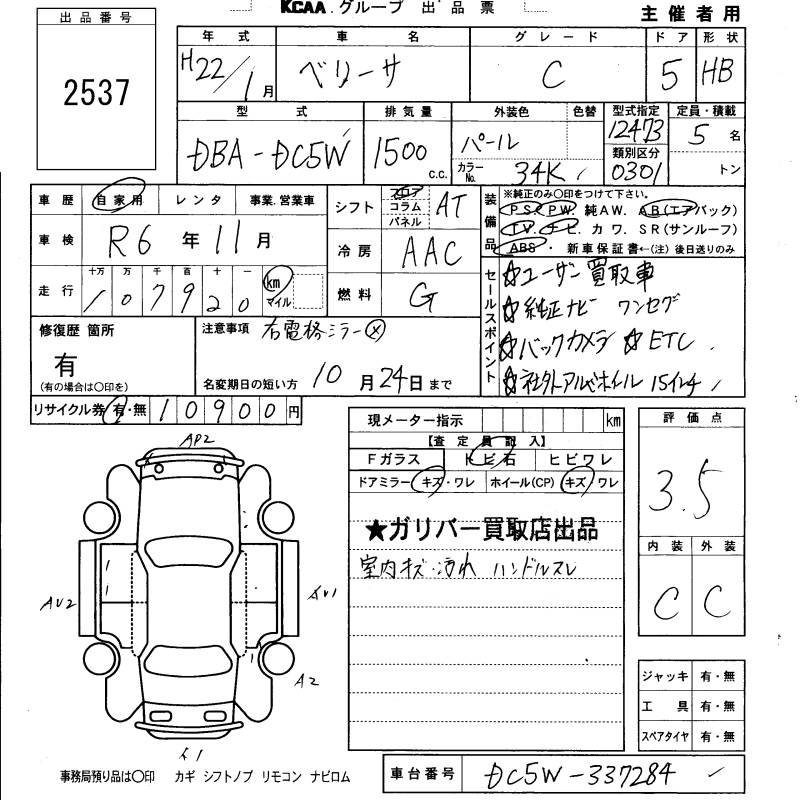 KCAA.グループ 出品票
主催者用
出品番号
2537
年式 車名 グレード ドア 形状
H22/1月 ベリーサ C 5 HB
型式 排気量 外装色 色替 型式指定 定員・積載
DBA-DC5W 1500 c.c. パール カラーNo. 34K 12473 5名
類別区分 0301 トン
車歴 自家用 レンタ 事業.営業車
シフト フロア コラム パネル AT
装備品 ※純正のみ〇印をつけて下さい。
PS. PW. 純AW. AB(エアバック)
TV. ナビ カワ. SR(サンルーフ)
ABS・ 新車保証書←(注)後日送りのみ
車検 R6年11月
冷房 AAC
走行 十万 万 千 百 十 一
107920 km マイル
燃料 G
セールスポイント
☆ユーザー買取車
☆純正ナビ ワンセグ
☆バックカメラ ☆ETC
☆社外アルミホイル 15インチ
修復歴 箇所
有
(有の場合は〇印を)
注意事項 右電格ミラー(×)
名変期日の短い方 10月24日まで
リサイクル券 有・無 10900円
現メーター指示 km
【査定員記入】
Fガラス トビ石 ヒビワレ
ドアミラー キズ・ワレ ホイール(CP) キズ/ワレ
★ガリバー買取店出品
室内キズ・汚れ ハンドルスレ
評価点
3.5
内装 外装
C C
AP2
AU2
A2
ジャッキ 有・無
工具 有・無
スペアタイヤ 有・無
事務局預り品は〇印 カギ シフトノブ リモコン ナビロム
車台番号 DC5W-337284